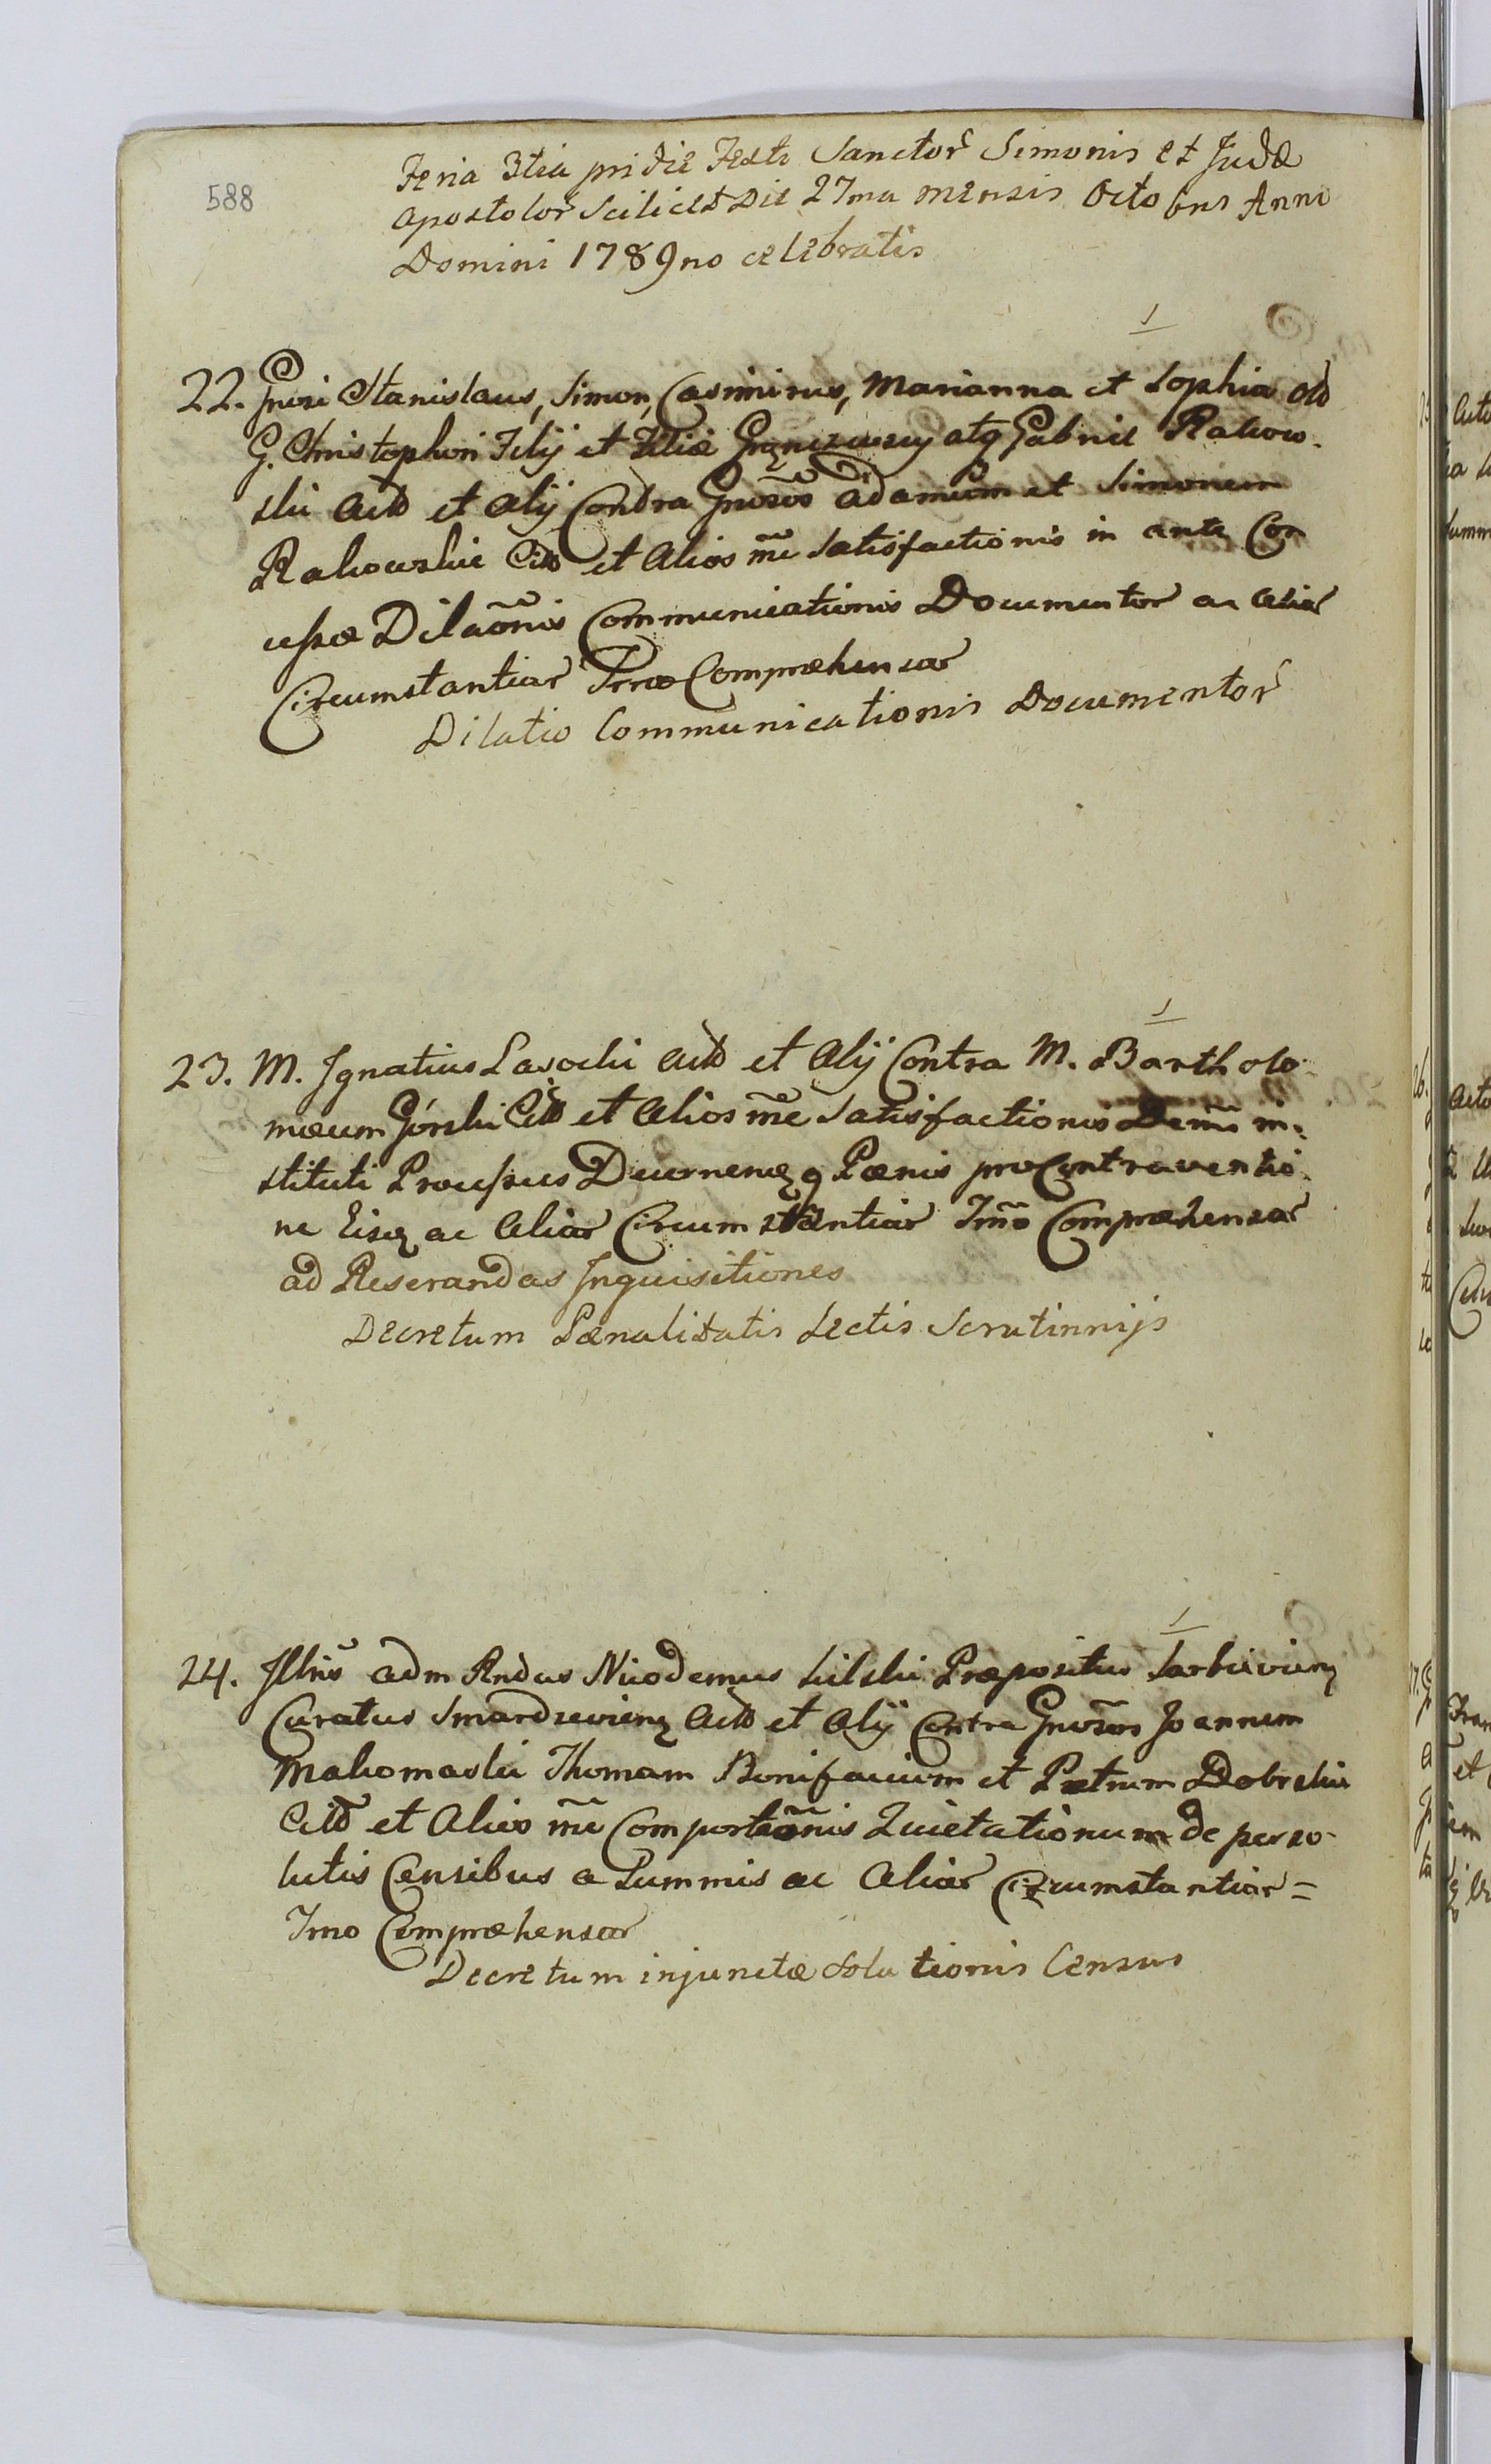 588
Feria 3tia pridie Festi Sanctor Simonis et Judæ
Apostolor Scilicet Die 27ma Mensis Octobris Anni
Domini 1789no celebratis
1
22. Gnosi Stanislaus, Simon, Casimirus, Marianna et Sophia olo
G. Christophori Filij et Filiæ atq Gabriel Rakow-
ski Acto et Alij Contra Gnosos Adamum et Simonem
Rakowskie Cito et Alios mẽ Satisfactionis in ante Con
cessæ Dilaõnis Communicationis Documentor ac Aliar
Circumstantiar Compræhensar
Dilatio Communicationis Documentor
1
23. M. Ignatius Lasocki Acto et Alij Contra M. Bartholo-
mæum Górski Cito et Alios mẽ Satisfactionis in-
stituti Processus Pœnis pro Contraventio-
ne Eisq ac Aliar Circumstantiar Imo Compræhensar
ad Reserandas Inquisitiones
Decretum Pœnalitatis Lectis Scrutinnijs
1
24. Illris adm Rndus Nicodemus Præpositus
Curatus Acto et Alij Contra Gnosos Joannem
Makomaski Thomam Bonifacium et Petrum Dobrskie
Cito et Alios mẽ Comportaõnis Quietationum de perso-
lutis Censibus a Summis ac Aliar Circumstantiar =
Imo Compræhensar
Decretum injunctæ Solutionis Census